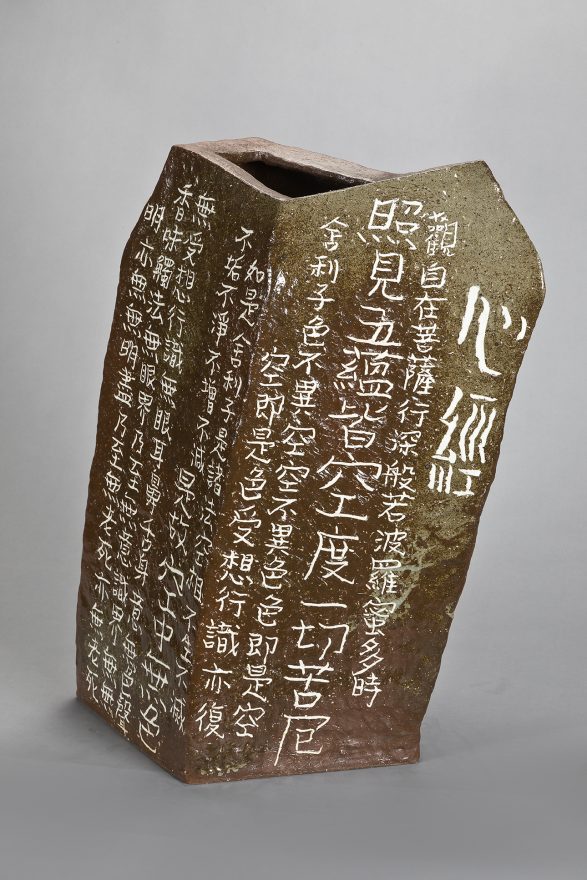 心經
觀自在菩薩行深般若波羅蜜多時
照見五蘊皆空度一切苦厄
舍利子色不異空空不異色色即是空
空即是色受想行識亦復
如是舍利子是諸法空相不生不滅
不垢不淨不增不減是故空中無色
無受想行識無眼耳鼻舌身意無色聲
香味觸法無眼界乃至無意識界無無
明亦無無明盡乃至無老死亦無老死